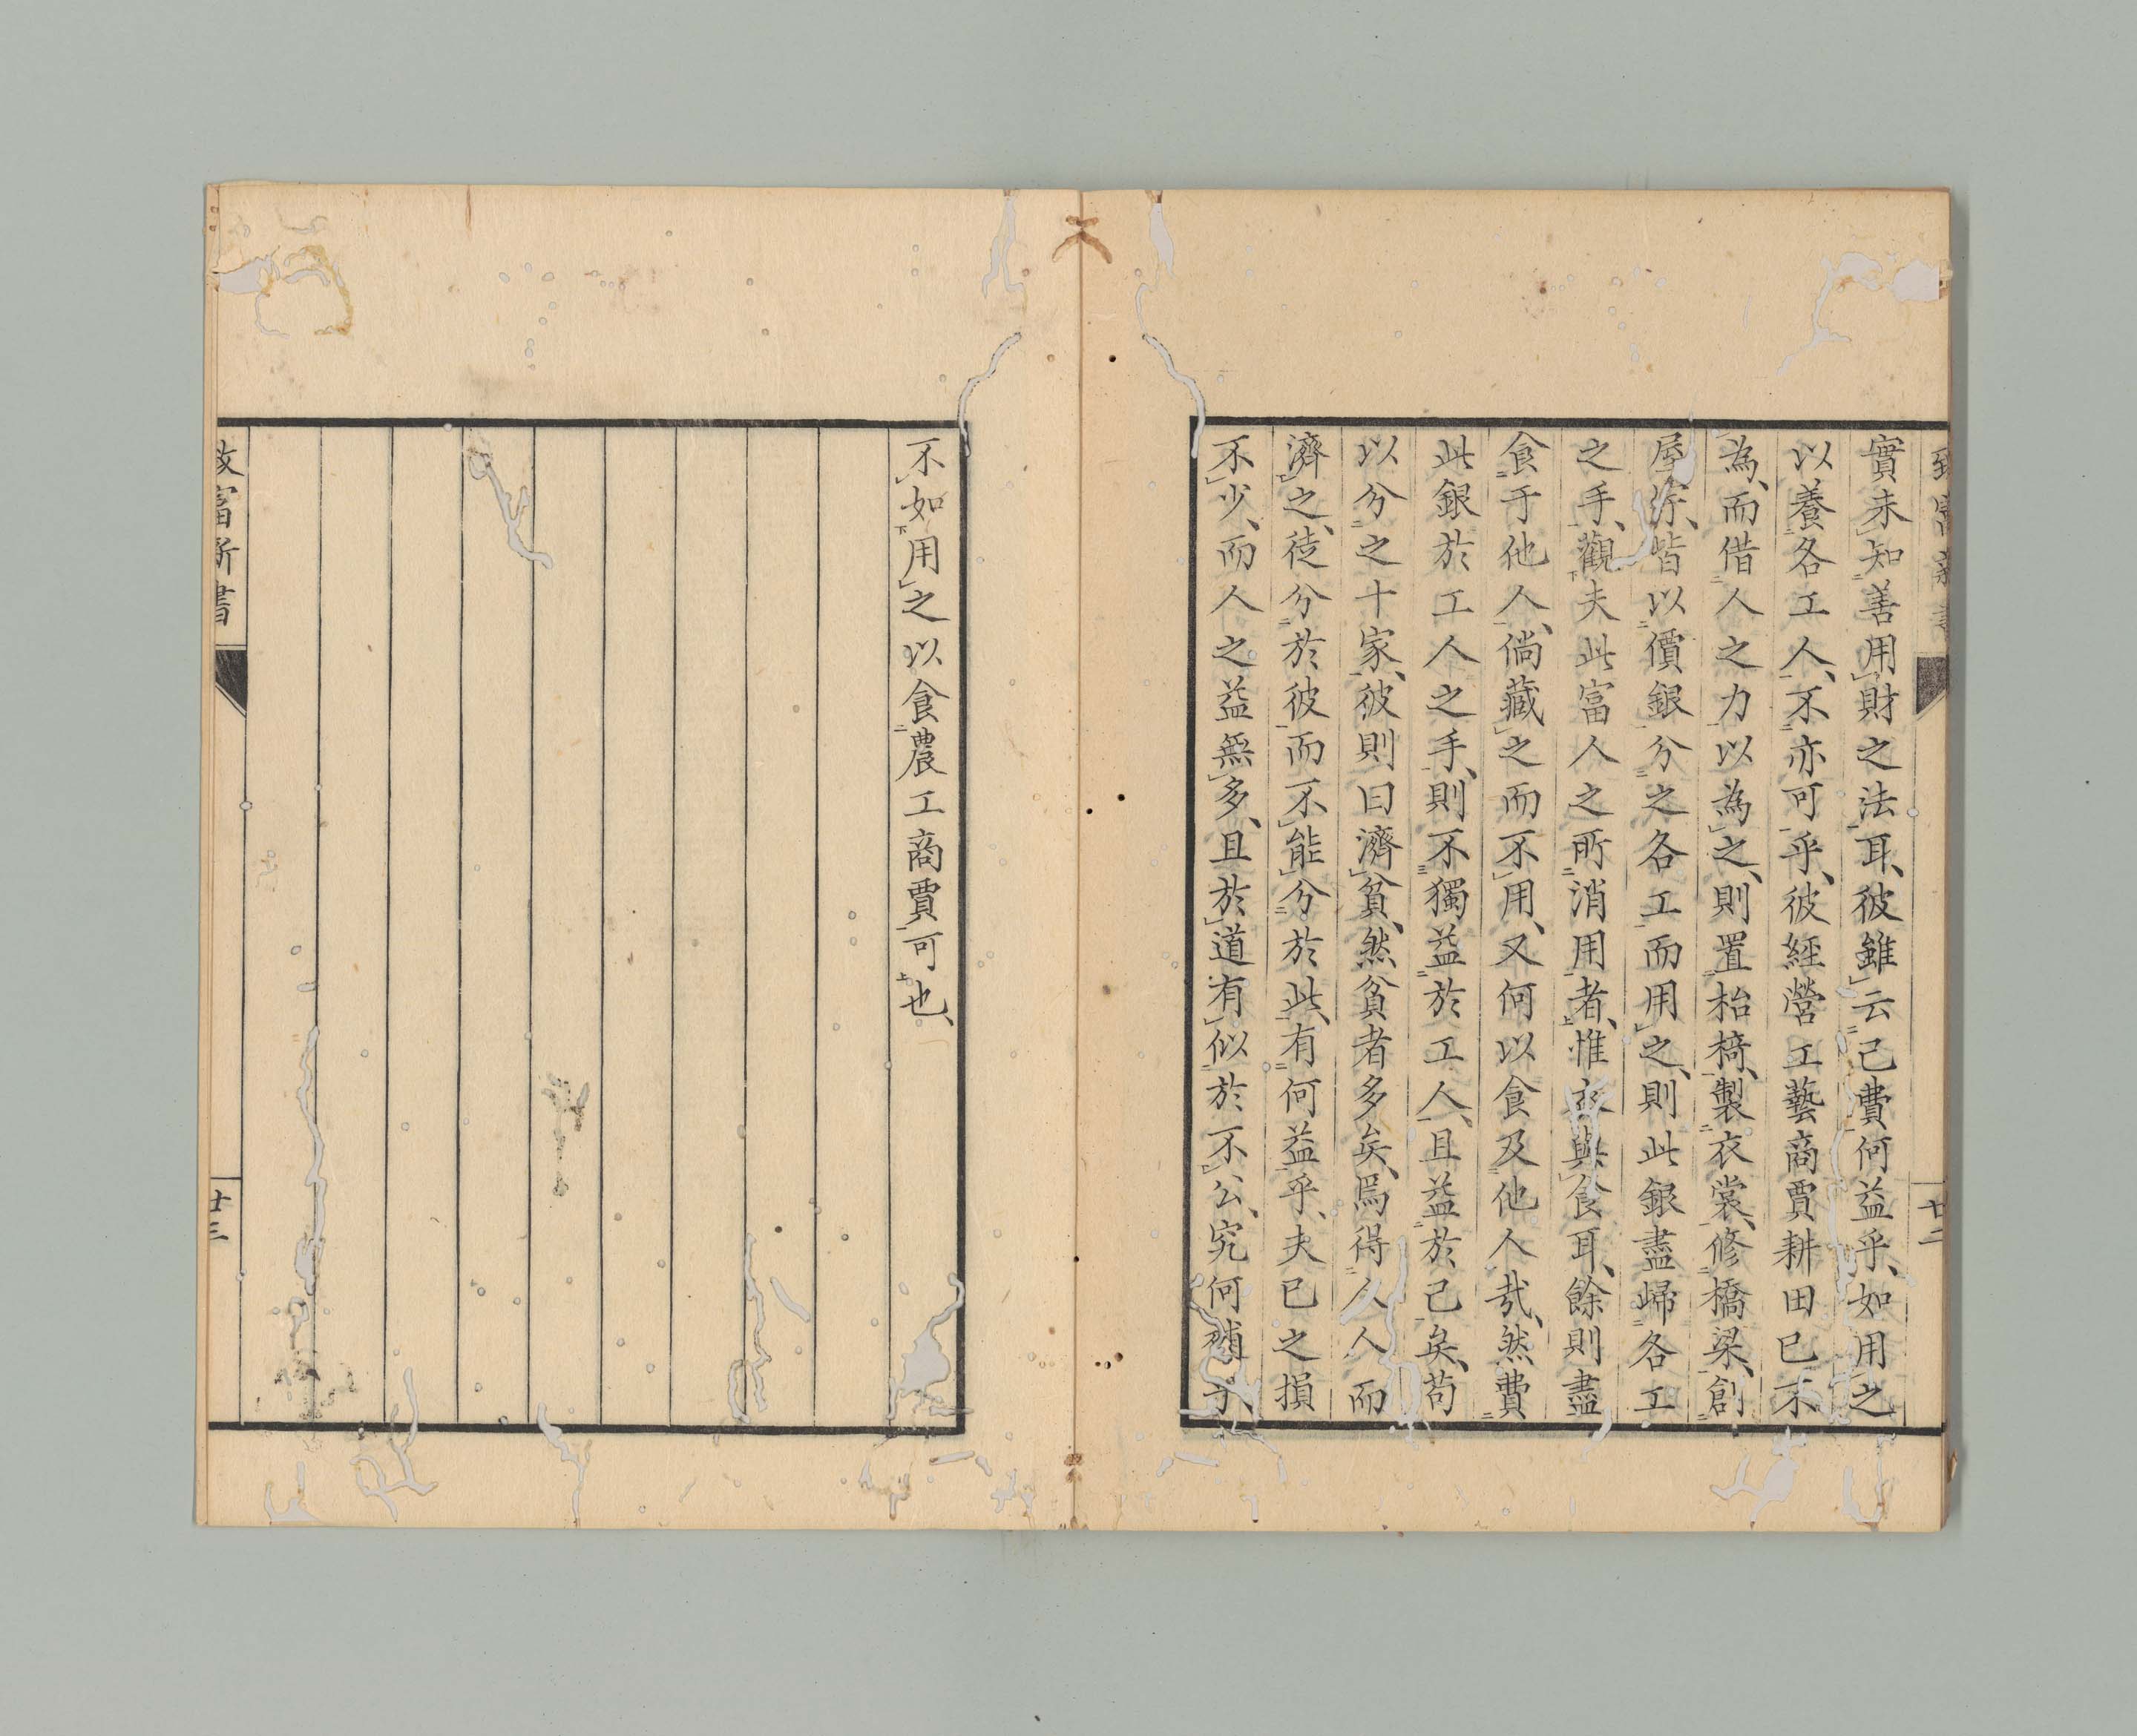 致富新書
廿二
實未知善用財之法耳、彼雖云己費何益乎、如用之
以養各工人、不亦可乎、彼經營工藝商賈耕田已不
為、而借人之力以為之、則置枱椅、製衣裳、修橋梁、創
屋宇、皆以價銀分之各工而用之、則此銀盡歸各工
之手、觀夫此富人之所消用者、惟衣與食耳、餘則盡
食于他人、倘藏之而不用、又何以食及他人哉、然費
此銀於工人之手、則不獨益於工人、且益於己矣、苟
以分之十家、彼則曰濟貧、然貧者多矣、焉得人人而
濟之、徒分於彼而不能分於此、有何益乎、夫已之損
不少、而人之益無多、且於道有似於不公、究何
不如用之以食農工商賈可也、
致富新書
廿三